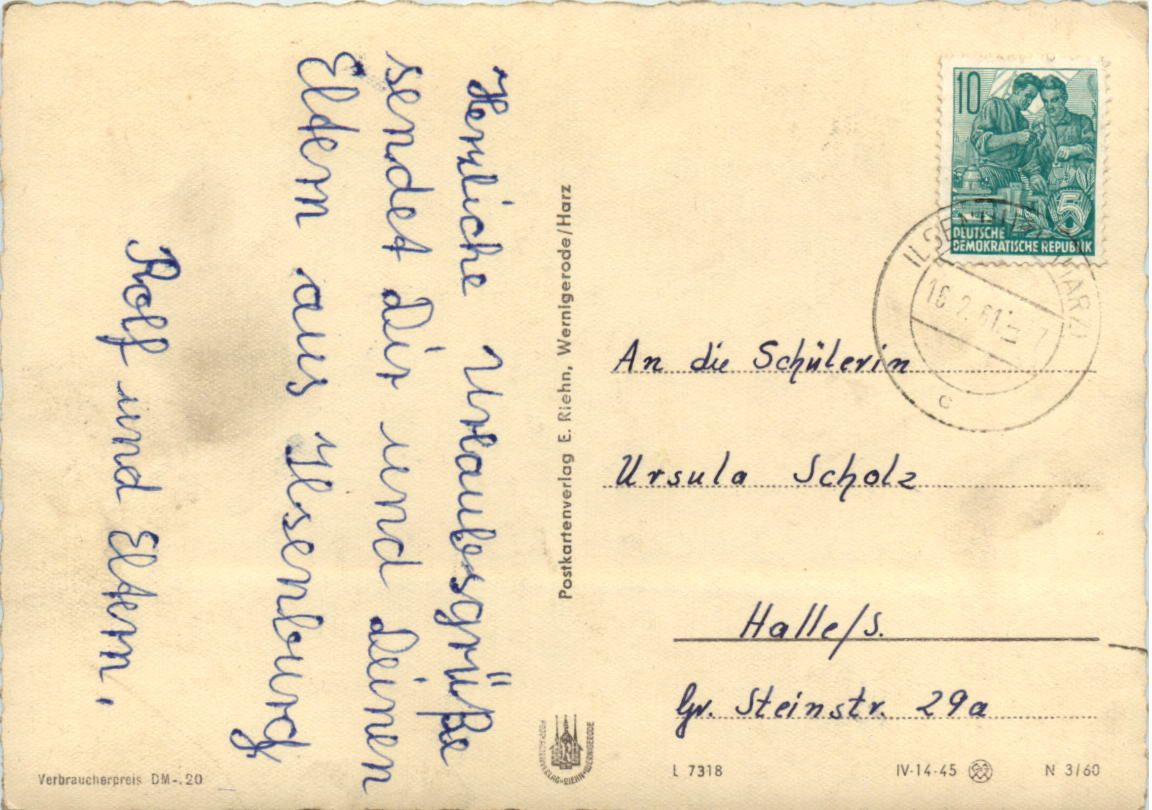 Herzliche Urlaubsgrüße
sendet dir und deinen
Eltern aus Ilsenburg
Rolf und Eltern.
Postkartenverlag E. Riehn, Wernigerode/Harz
10
5
DEUTSCHE
DEMOKRATISCHE REPUBLIK
(HARZ)
16.2.61
c
An die Schülerin
Ursula Scholz
Halle/S.
Gr. Steinstr. 29a
Verbraucherpreis DM-.20
L 7318
IV-14-45
N 3/60